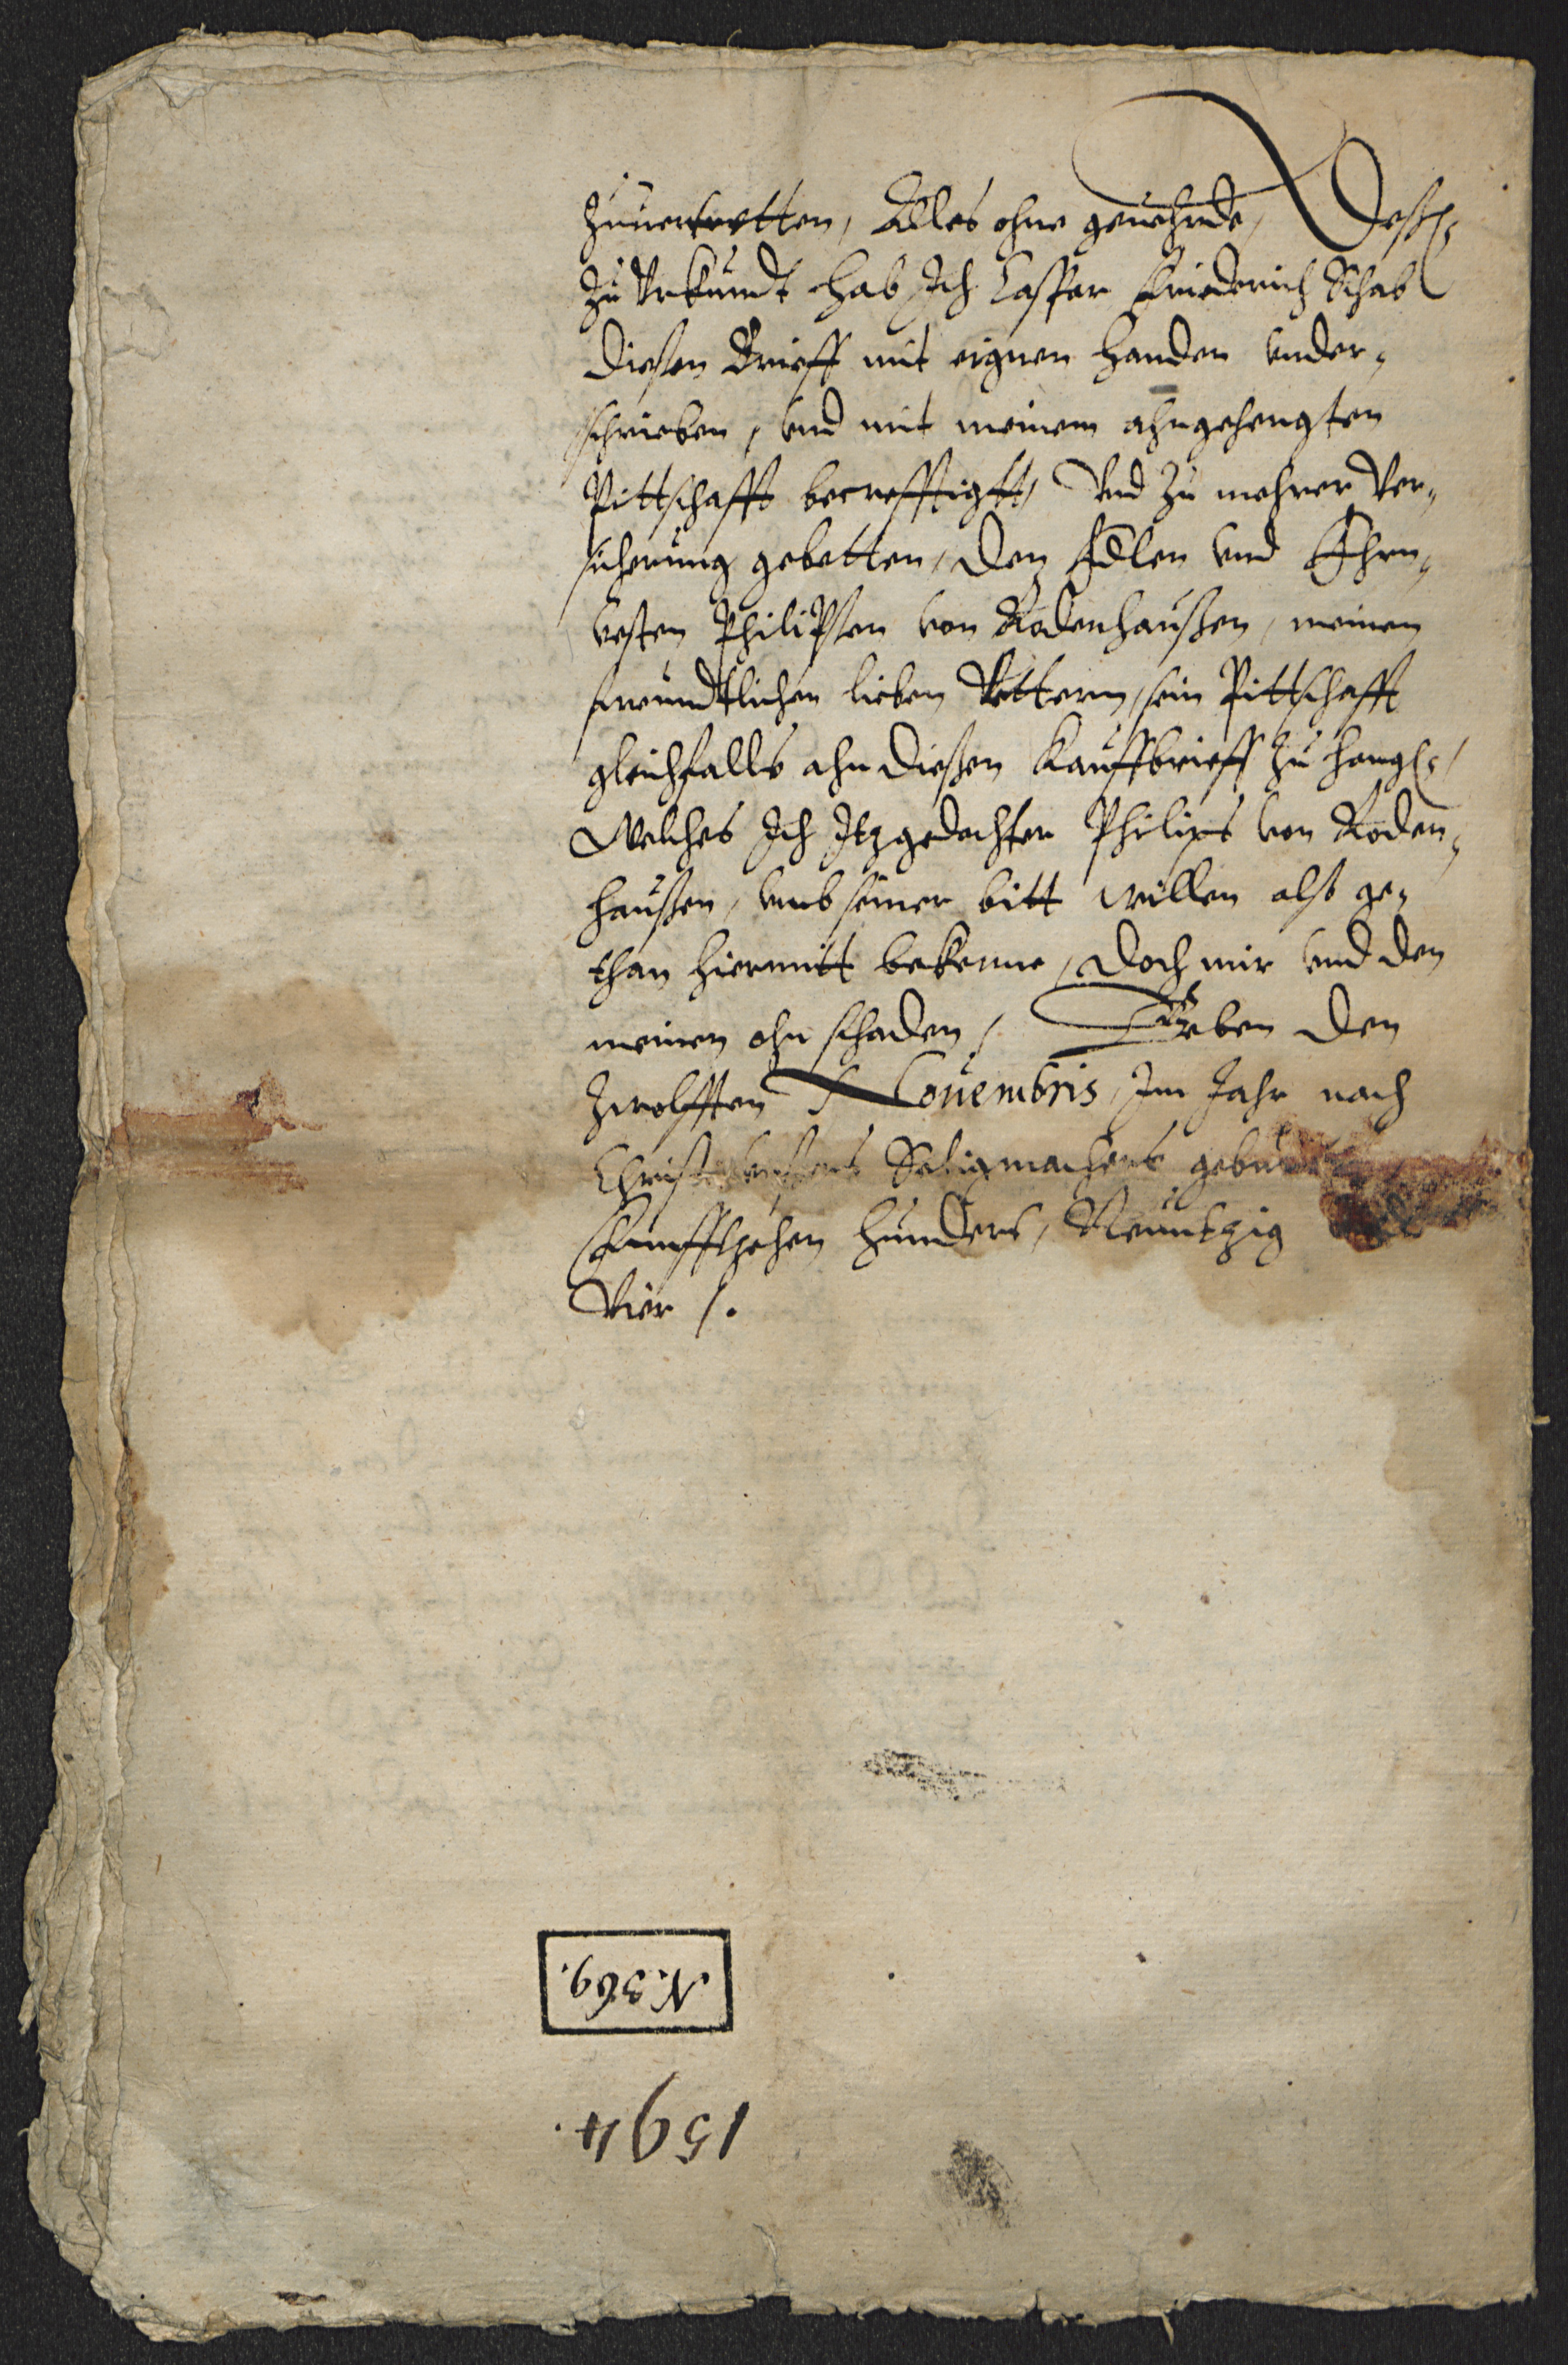 Zuuertretten, Alles ohne geuehrde, Deß
zu Vrkundt hab Ich Casper Friederich Schabel
diesen Brieff mit eignen handen vnder-
schrieben, vnd mit meinem ahngehengten
Pittschafft becrefftigtt, Vnd zu mehrer Ver-
sicherung gebetten, den Edlen vnd Ehrn-
vesten Philipsen von Rodenhaußen, meinen
freundtlichen lieben Vettern, sein Pittschafft
gleichfalls ahn dießen Kauffbrieff zu hangen,
Welches Ich Itzgedachter Philips von Roden-
haußen, vmb seiner bitt willen also ge-
than hiermitt bekenne, doch mir vnd den
meinen ohn schaden, Geben den
Zwolfften Nouembris, Im Jahr nach
Christi vnsers Seligmachers
Funffzehen hundert, Neuntzig
Vier.
N. 369.
1594.